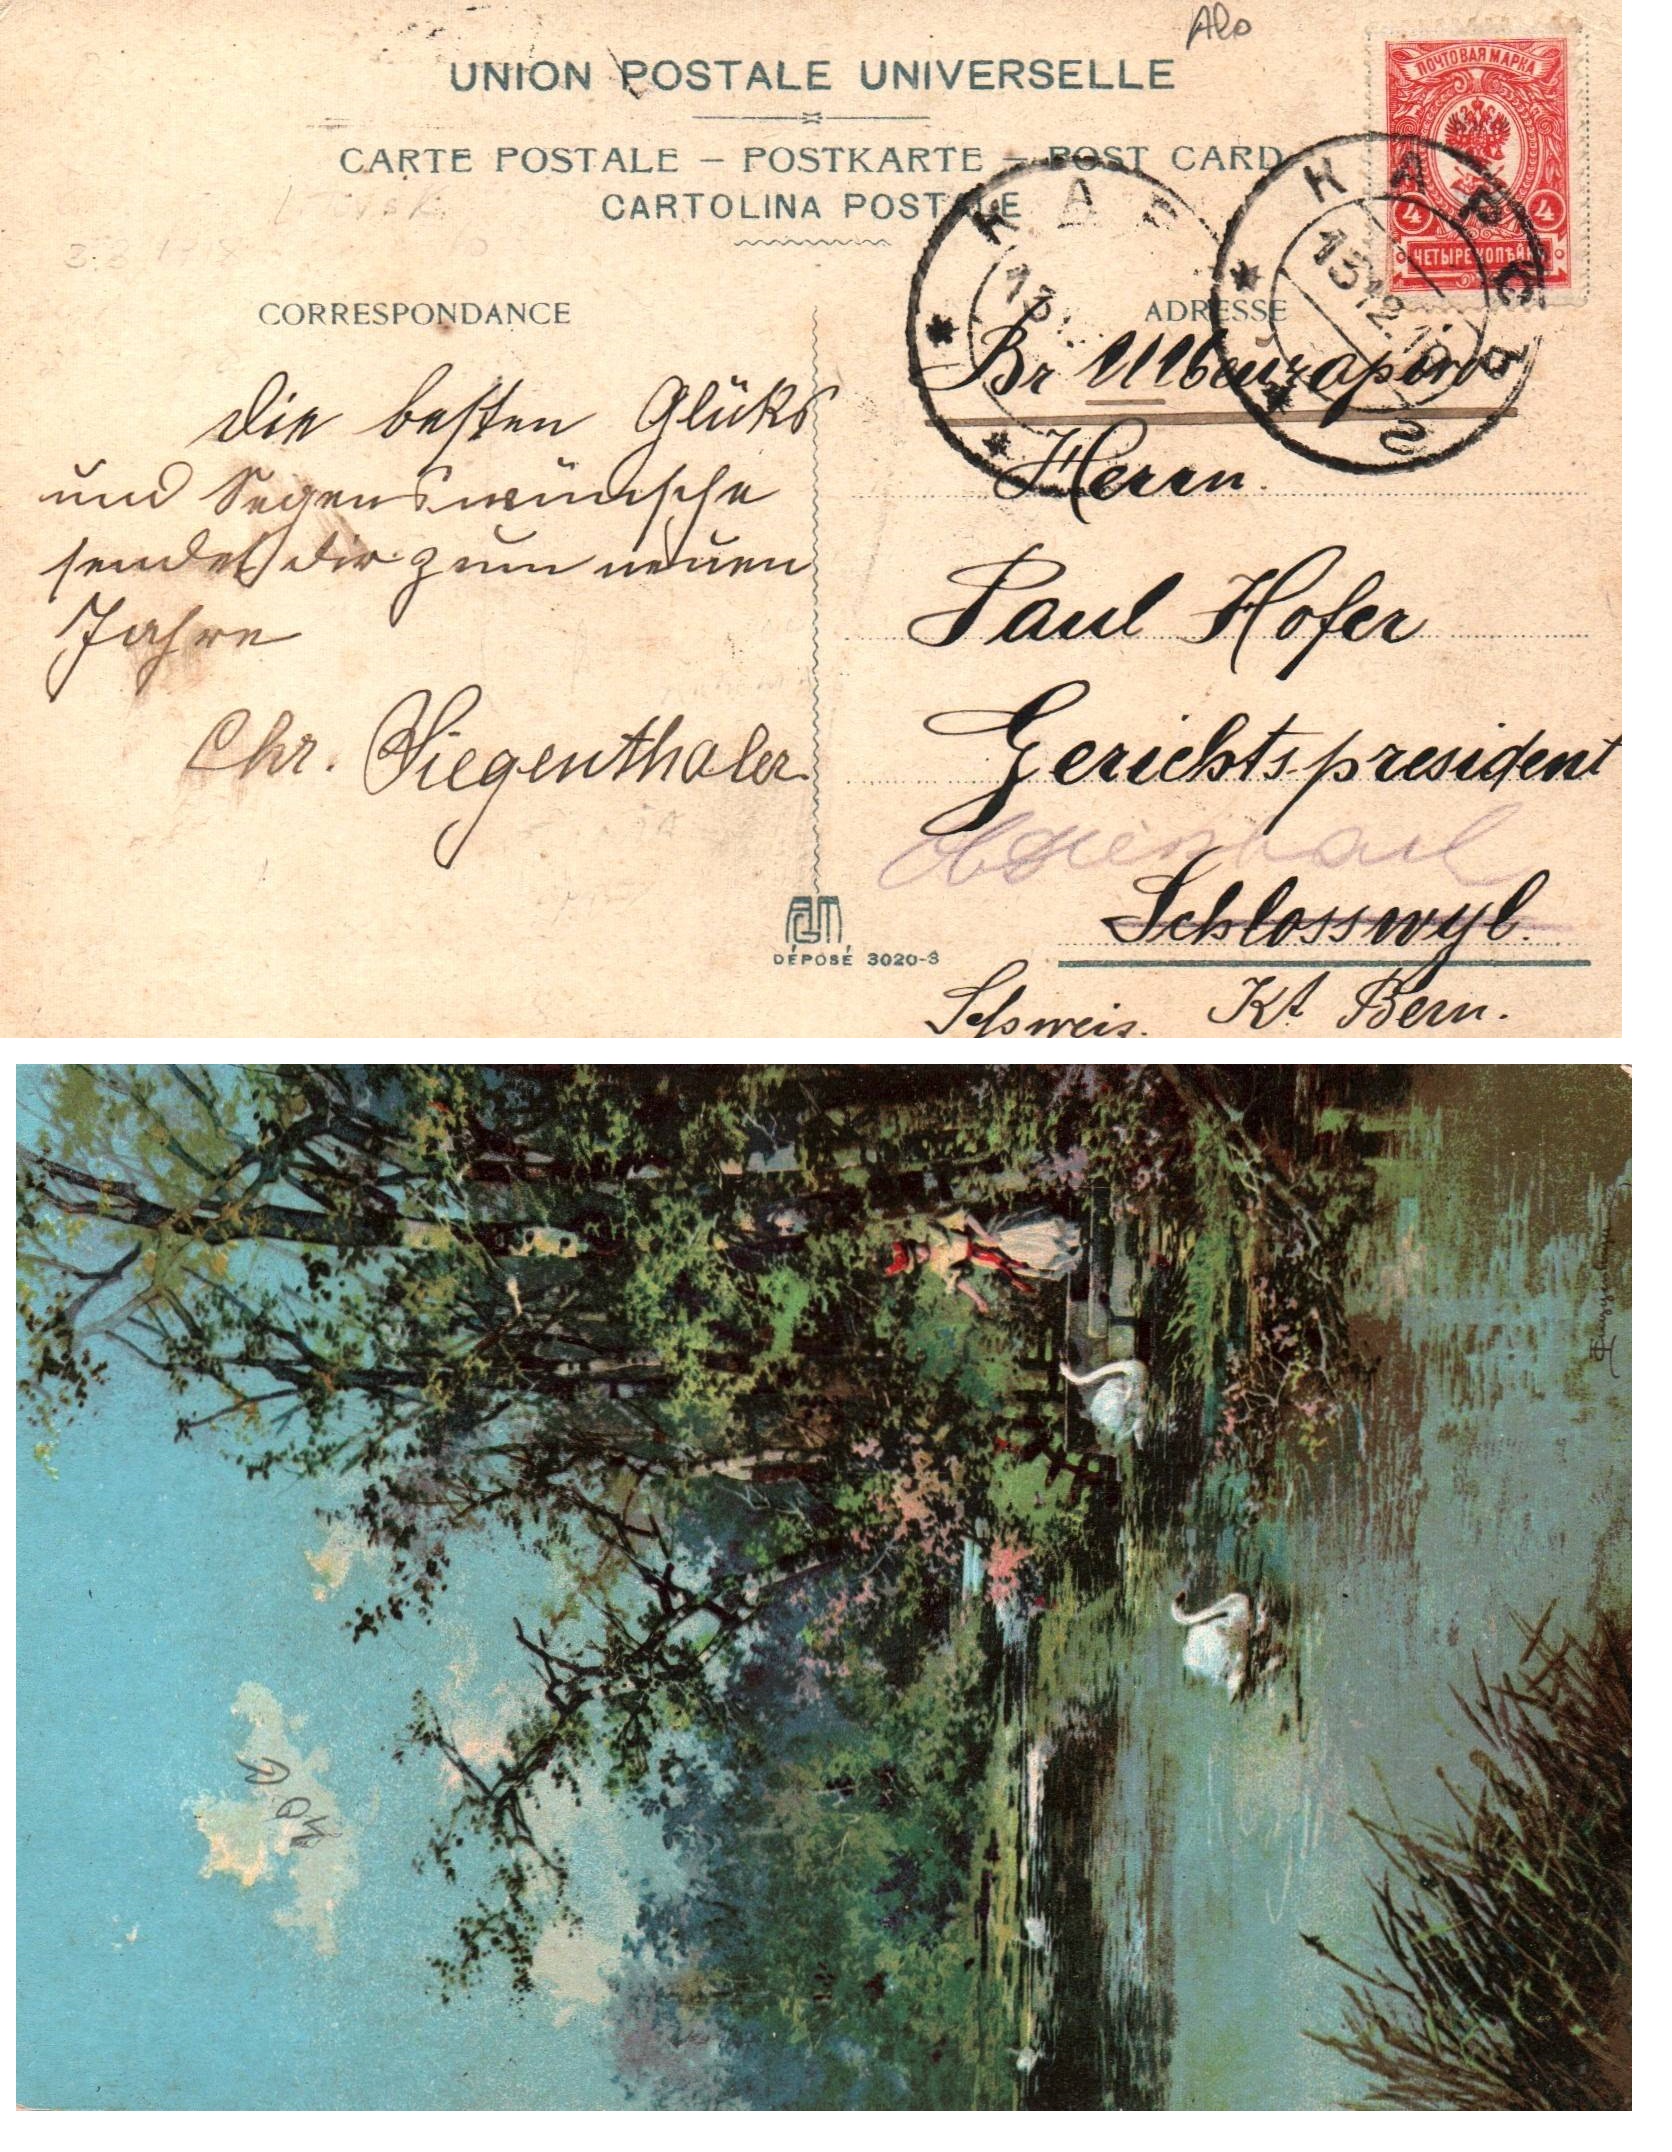 Alo
UNION POSTALE UNIVERSELLE
CARTE POSTALE – POSTKARTE – POST CARD
CARTOLINA POSTALE
ПОЧТОВАЯ МАРКА
4 4
ЧЕТЫРЕ КОПѢЙКИ
КАР
13
КАРСЪ
13.12.10
г
CORRESPONDANCE
ADRESSE
Die besten Glüks
und Segenswünsche
sendet dir zum neuen
Jahre
Chr. Siegenthaler
Вг Швейцарію
Herrn.
Paul Hofer
Gerichtspresident
Schlosswyl.
Schweiz. Kt Bern.
AGM
DÉPOSÉ 3020-3